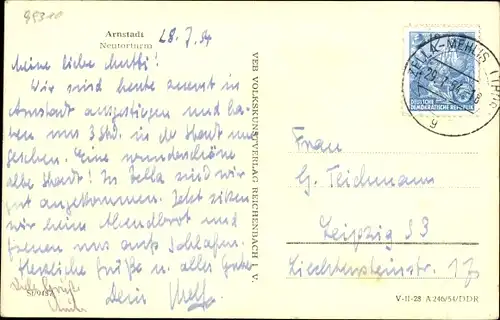 99310
Arnstadt
Neutorturm
28.7.54
Meine liebe Mutti!
Wir sind heute zuerst in
Arnstadt ausgestiegen und ha-
ben uns 3 Std. in der Stadt um-
gesehen. Eine wunderschöne
alte Stadt! In Zella sind wir
gut angekommen. Jetzt sitzen
wir beim Abendbrot und
freuen uns aufs Schlafen.
Herzliche Grüße u. alles Gute
Dein
Viele Grüße
VEB VOLKSKUNSTVERLAG REICHENBACH I. V.
ZELLA-MEHLIS
DEUTSCHE
DEMOKRATISCHE REPUBLIK
g
Frau
G. Teichmann
Leipzig S3
Liechtensteinstr. 17
V-11-28 A 246/54/DDR